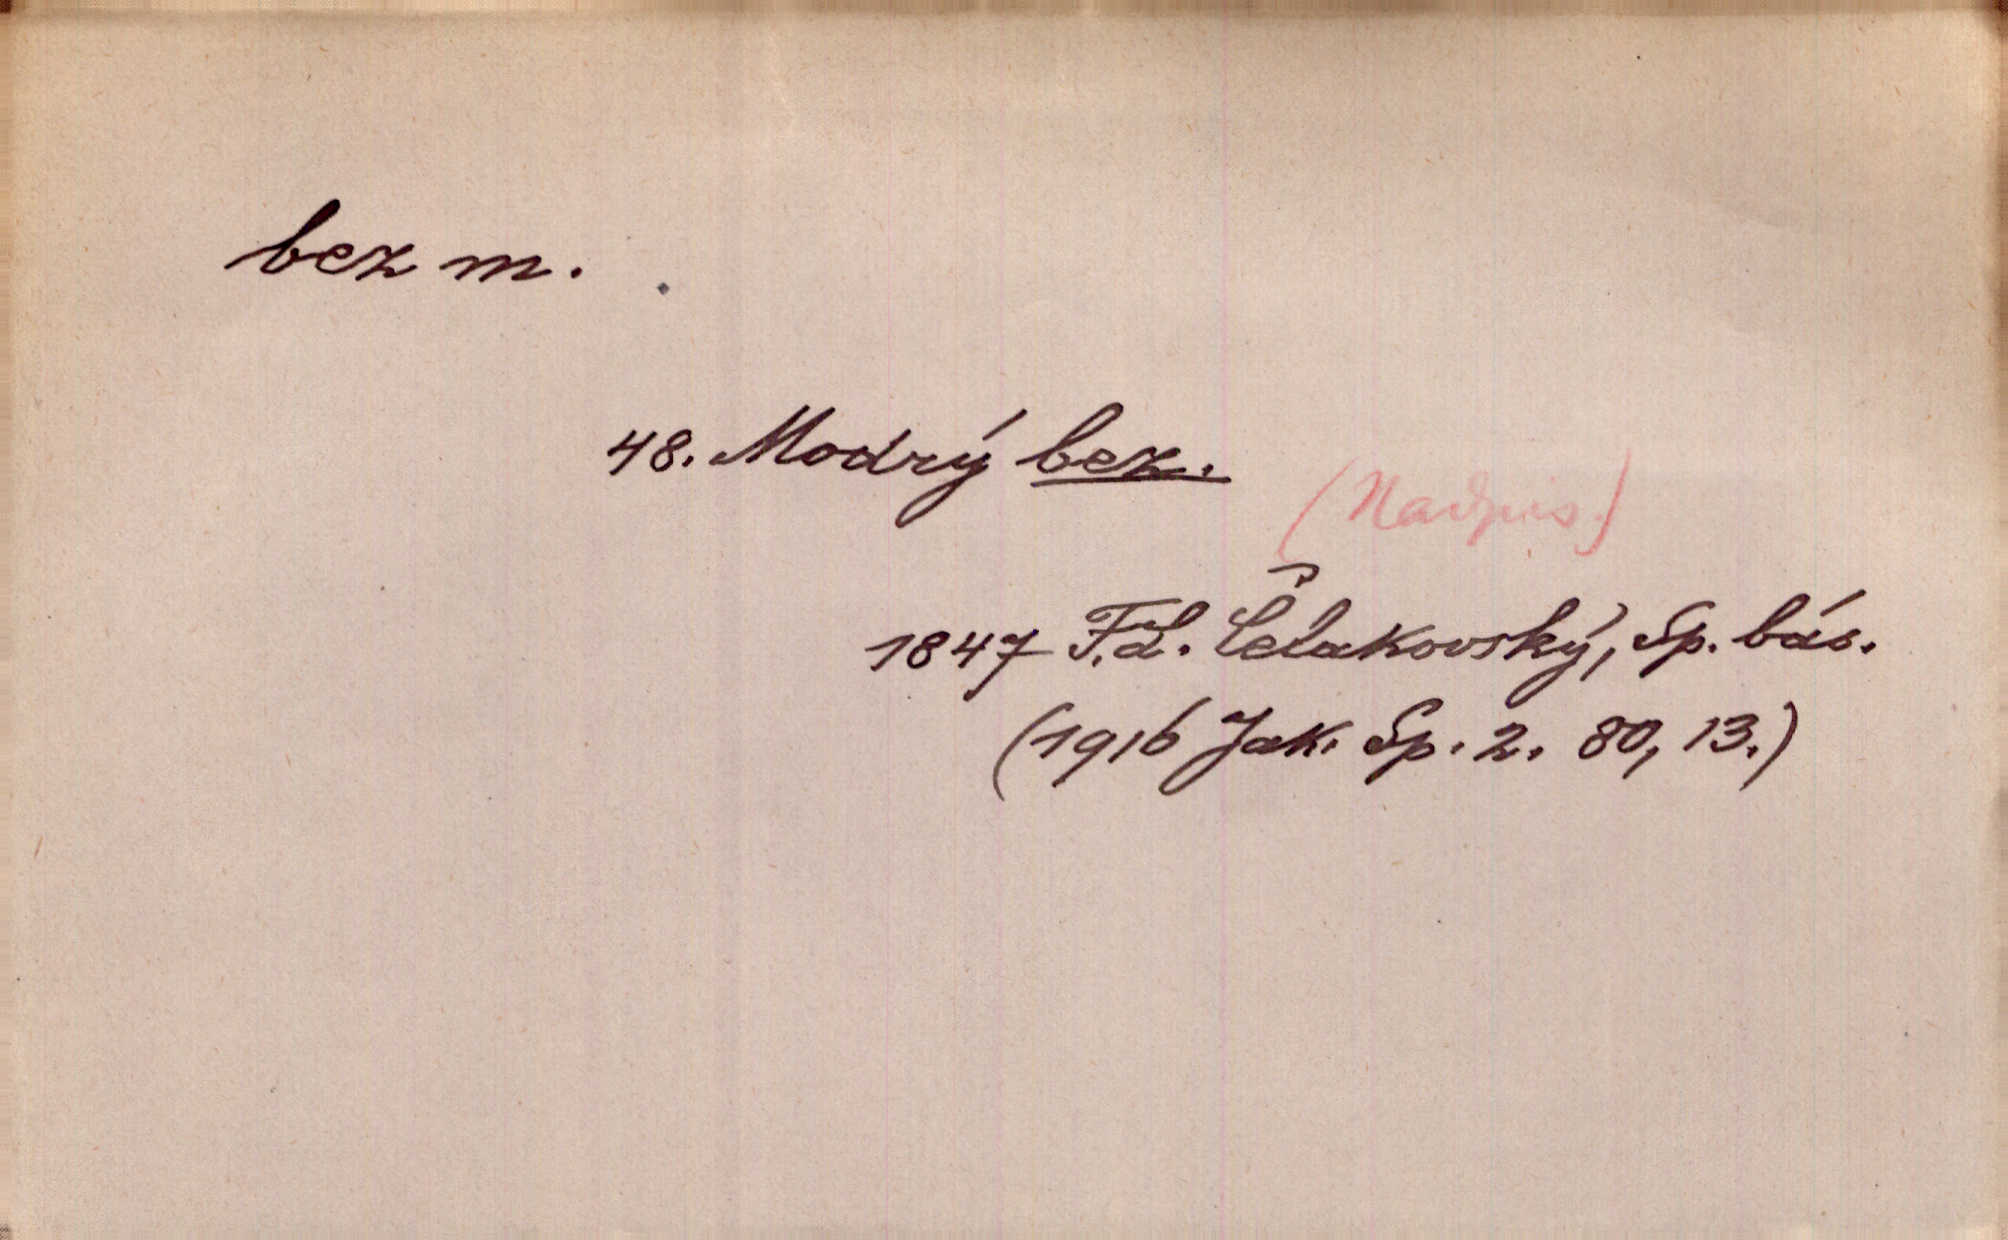 bez m.
48. Modrý bez.
(Nadpis.)
1847 F.L. Čelakovský, Sp. bás.
(1916 Jak. Sp. 2. 80, 13.)